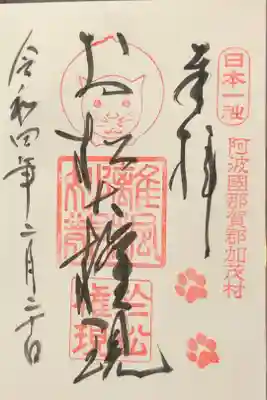 日本一社
阿波國那賀郡加茂村
奉拝
お松大權現
於松
権現
令和四年二月二十日